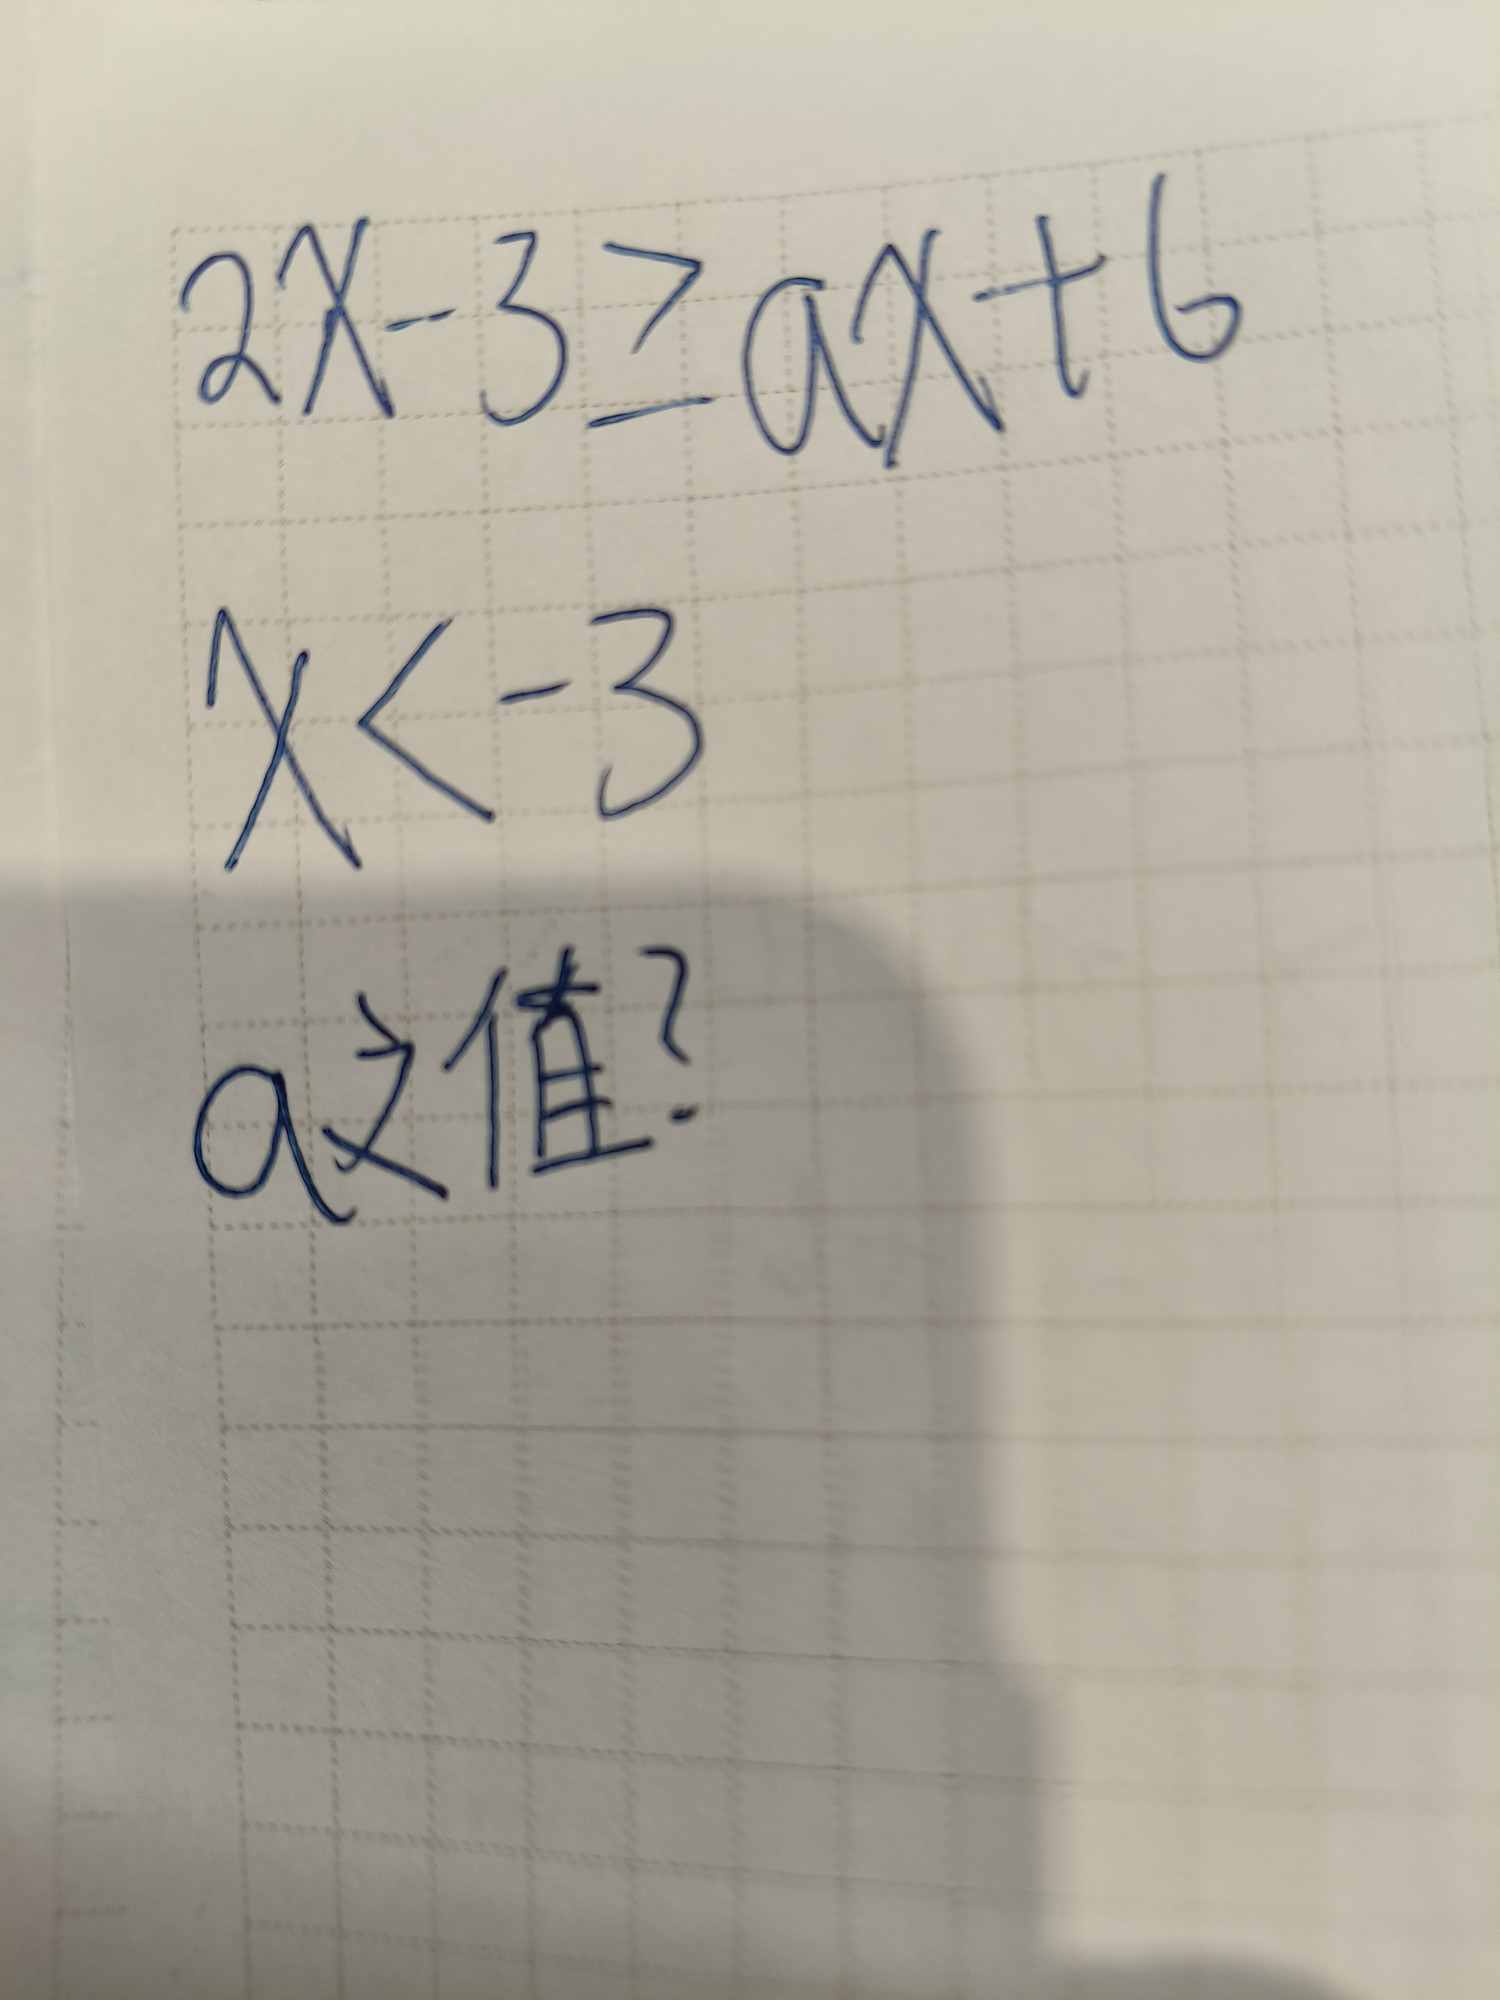 2x-3≥ax+6
x<-3
a之值?